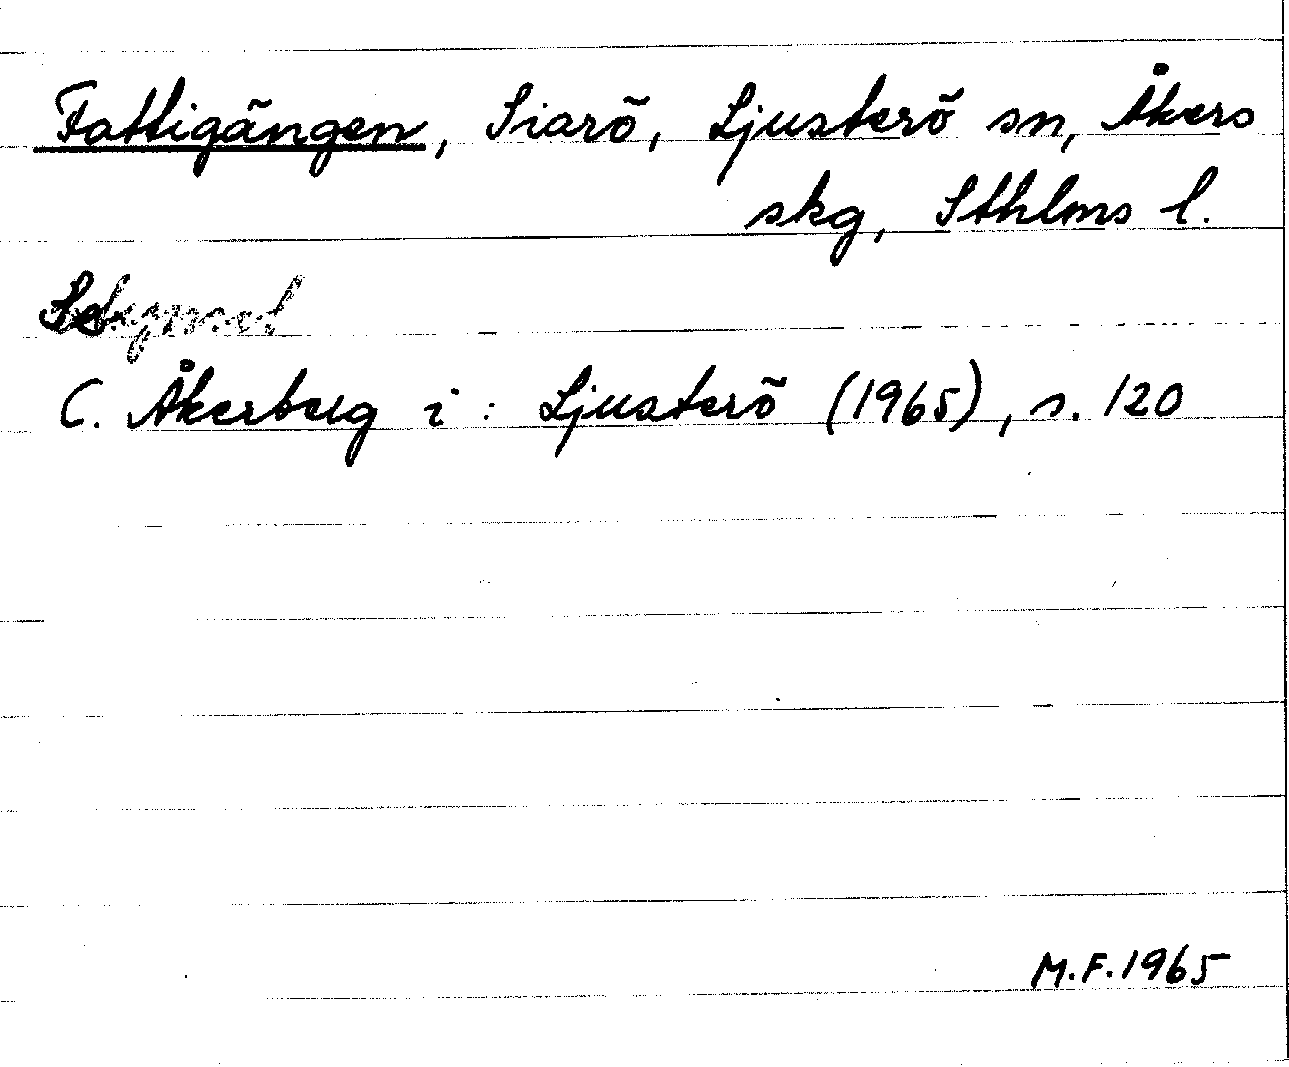 Fattigängen, Siarö, Ljusterö sn, Åkers
skg, Sthlms l.
C. Åkerberg i: Ljusterö (1965), s. 120
M.F.1965